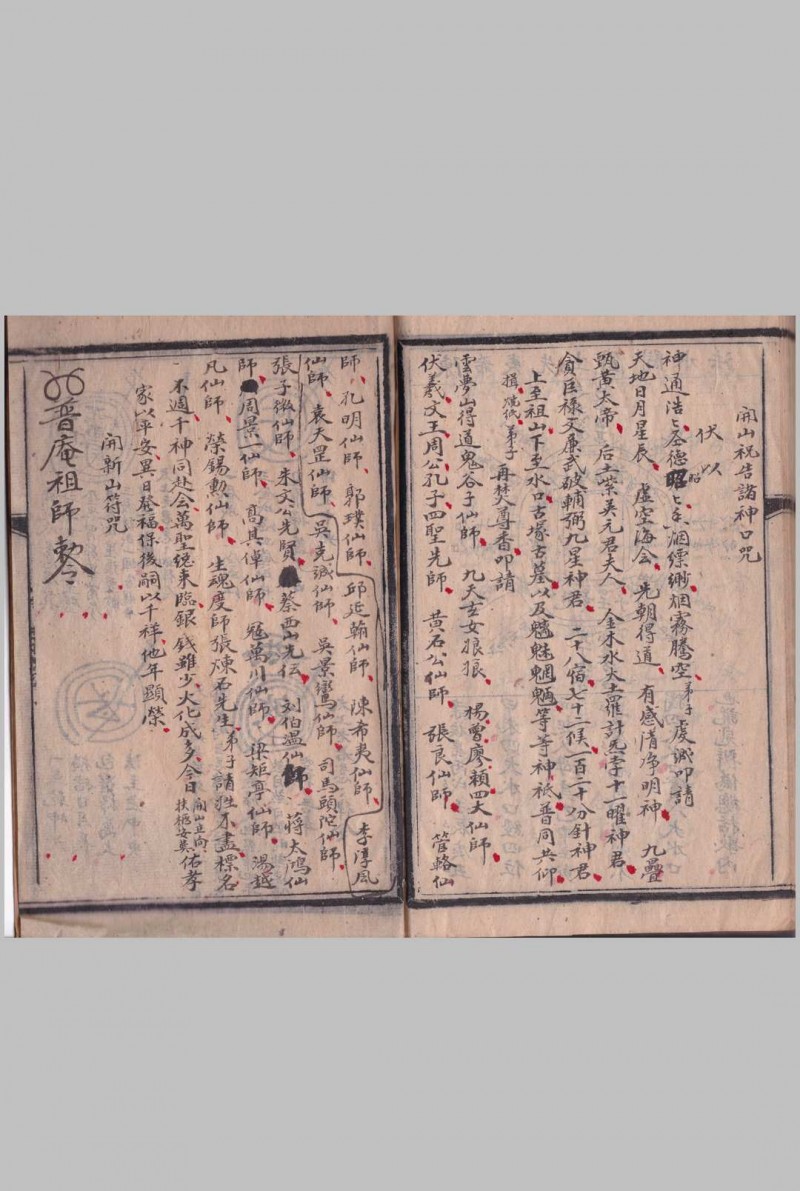 開山祝告諸神口咒
伏以
神通浩〻圣德昭〻昭香烟縹緲烟霧騰空弟子虔誠叩請
天地日月星辰 虛空海会 先朝得道 有感清净明神 九壘
甄黄太帝 后土紫英元君夫人 金木水火土羅計炁孛十一曜神君
貪巨禄文廉武破輔弼九星神君 二十八宿七十二候一百二十分針神君
上至祖山下至水口古塚古墓以及魑魅魍魎等等神祇普同共仰
揖 弟子 再焚尊香叩請
雲夢山得道鬼谷子仙師 九天玄女娘娘 楊曾廖賴四大仙師
伏羲文王周公孔子四聖先師 黄石公仙師 張良仙師 管輅仙
師 孔明仙師 郭璞仙師 邱延翰仙師 陳希夷仙師 李淳風
仙師 袁天罡仙師 吳克诚仙師 吳景鸞仙師 司馬頭陀仙師
張子微仙師 朱文公先賢 蔡西山先 刘伯温仙師 蒋太鴻仙
師 周景一仙師 高其倬仙師 冦萬川仙師 梁矩亭仙師 湯越
凡仙師 榮錫勲仙師 生魂度師張煉石先生 弟子請姓不盡標名
不週千神同赴会萬聖總来臨銀錢雖少火化成多今日開山立向扶柩安葬佑孝
家以平安異日發福保後嗣以千祥他年顯榮
開新山符咒
普庵祖師勅令